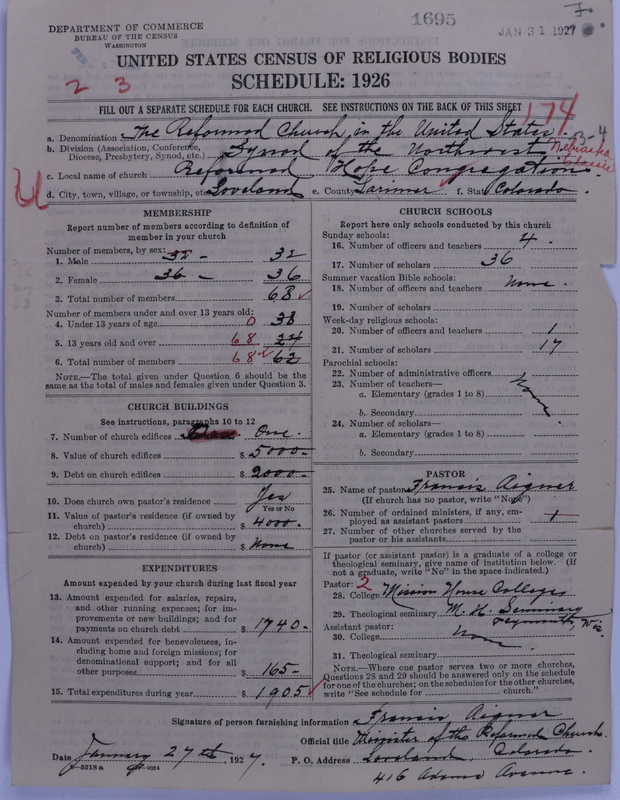 DEPARTMENT OF COMMERCE
BUREAU OF THE CENSUS
WASHINGTON
1695
JAN 31 1927
UNITED STATES CENSUS OF RELIGIOUS BODIES
2 3
SCHEDULE: 1926
FILL OUT A SEPARATE SCHEDULE FOR EACH CHURCH. SEE INSTRUCTIONS ON THE BACK OF THIS SHEET
174
a. Denomination The Reformed Church in the United States.
b. Division (Association, Conference, Diocese, Presbytery, Synod, etc.) Synod of the Northwest
Nebraska Classis
c. Local name of church Reformed Hope Congregation
d. City, town, village, or township, etc. Loveland e. County Larimer f. State Colorado.
MEMBERSHIP
Report number of members according to definition of
member in your church
Number of members, by sex:
1. Male 32 - 32
2. Female 36 - 36
3. Total number of members 68
Number of members under and over 13 years old:
4. Under 13 years of age 0 38
5. 13 years old and over 68 24
6. Total number of members 68 62
NOTE.—The total given under Question 6 should be the
same as the total of males and females given under Question 3.
CHURCH BUILDINGS
See instructions, paragraphs 10 to 12
7. Number of church edifices One.
8. Value of church edifices $ 5000-
9. Debt on church edifices $ 2000-
10. Does church own pastor's residence Yes
Yes or No
11. Value of pastor's residence (if owned by
church) $ 4000.
12. Debt on pastor's residence (if owned by
church) $ None
EXPENDITURES
Amount expended by your church during last fiscal year
13. Amount expended for salaries, repairs,
and other running expenses; for im-
provements or new buildings; and for
payments on church debt $ 1740-
14. Amount expended for benevolences, in-
cluding home and foreign missions; for
denominational support; and for all
other purposes $ 165-
15. Total expenditures during year $ 1905
CHURCH SCHOOLS
Report here only schools conducted by this church
Sunday schools:
16. Number of officers and teachers 4.
17. Number of scholars 36
Summer vacation Bible schools:
18. Number of officers and teachers None.
19. Number of scholars
Week-day religious schools:
20. Number of officers and teachers 1
21. Number of scholars 17
Parochial schools:
22. Number of administrative officers
23. Number of teachers— None
a. Elementary (grades 1 to 8)
b. Secondary
24. Number of scholars—
a. Elementary (grades 1 to 8)
b. Secondary
PASTOR
25. Name of pastor Francis Aigner
(If church has no pastor, write "None")
26. Number of ordained ministers, if any, em-
ployed as assistant pastors 1
27. Number of other churches served by the
pastor or his assistants
If pastor (or assistant pastor) is a graduate of a college or
theological seminary, give name of institution below. (If
not a graduate, write "No" in the space indicated.)
Pastor: 2
28. College Mission House College,
29. Theological seminary M. H. Seminary
Plymouth, Wis.
Assistant pastor:
30. College None.
31. Theological seminary
NOTE.—Where one pastor serves two or more churches,
Questions 28 and 29 should be answered only on the schedule
for one of the churches; on the schedules for the other churches,
write "See schedule for church."
Signature of person furnishing information Francis Aigner
Official title Minister of the Reformed Church.
Date January 27th, 1927. P. O. Address Loveland, Colorado.
8—5518a
416 Adams Avenue.